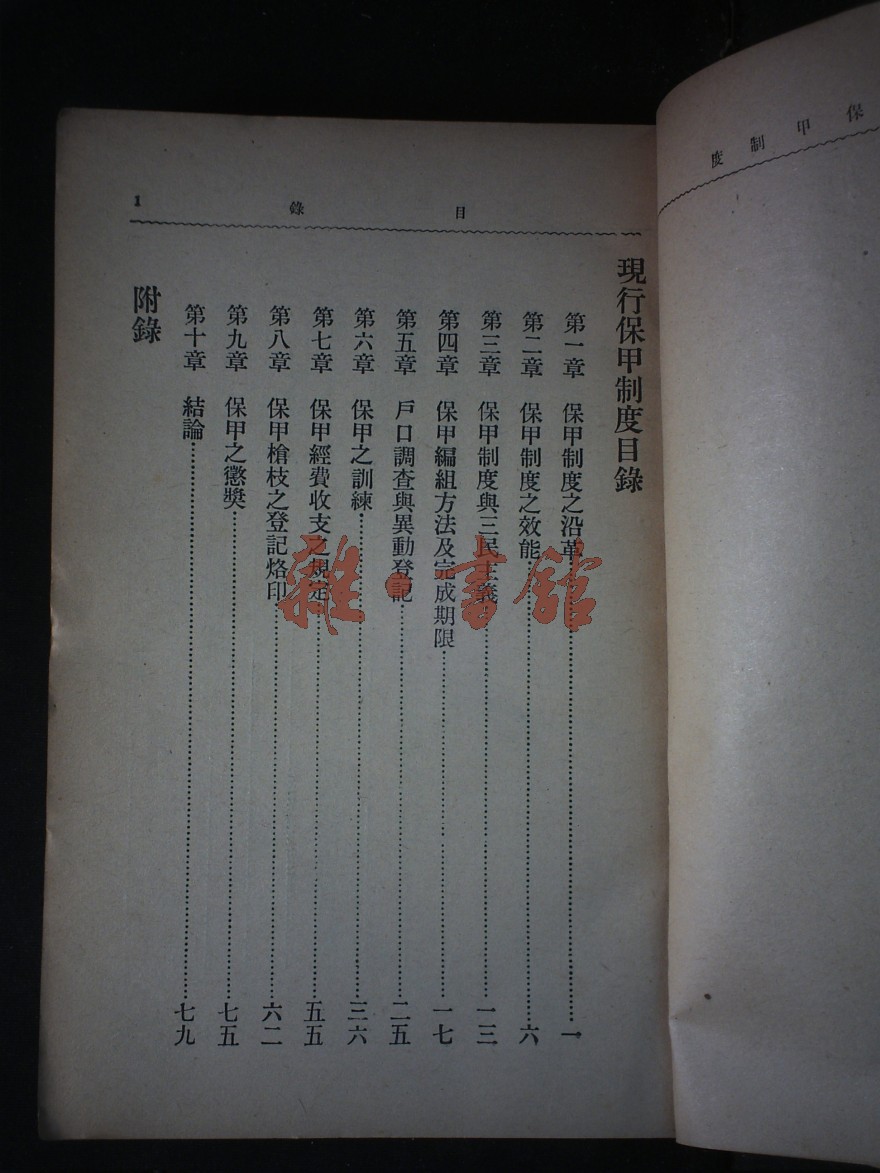 保甲制度
目錄 1
現行保甲制度目錄
第一章 保甲制度之沿革……一
第二章 保甲制度之效能……六
第三章 保甲制度與三民主義……一三
第四章 保甲編組方法及完成期限……一七
第五章 戶口調查與異動登記……二五
第六章 保甲之訓練……三六
第七章 保甲經費收支之規定……五五
第八章 保甲槍枝之登記烙印……六二
第九章 保甲之懲獎……七五
第十章 結論……七九
附錄
雜·書館